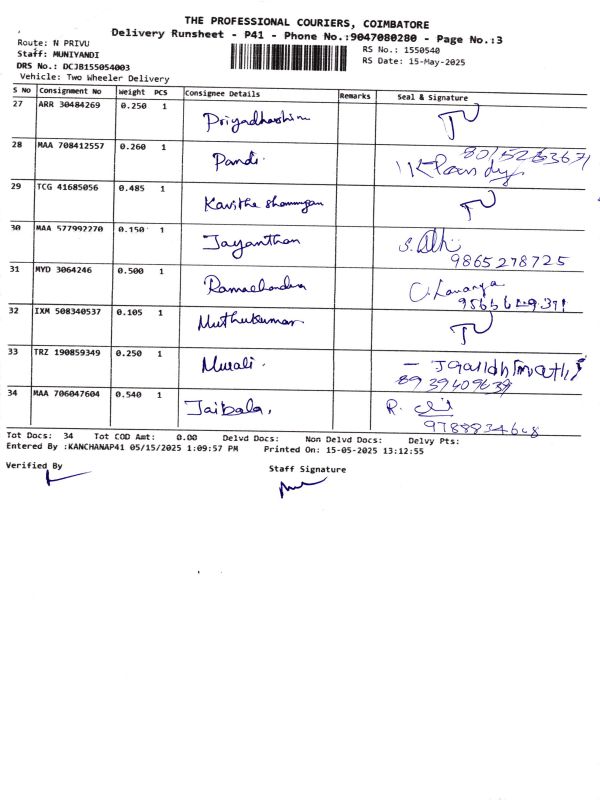 THE PROFESSIONAL COURIERS, COIMBATORE
Delivery Runsheet - P41 - Phone No.:9047080280 - Page No.:3
Route: N PRIVU
RS No.: 1550540
Staff: MUNIYANDI
RS Date: 15-May-2025
DRS No.: DCJB155054003
Vehicle: Two Wheeler Delivery
S No Consignment No Weight PCS Consignee Details Remarks Seal & Signature
27 ARR 30484269 0.250 1 Priyadharshini
28 MAA 708412557 0.260 1 Pandi.
29 TCG 41685056 0.485 1 Kavitha Shanmugam
30 MAA 577992270 0.150 1 Jayanthan
9865278725
31 MYD 3064246 0.500 1 Ramachandra
C. Lavanya
32 IXM 508340537 0.105 1 Muthukumar
33 TRZ 190859349 0.250 1 Murali.
8939409639
34 MAA 706047604 0.540 1 Jaibala,
R.
9788834608
Tot Docs: 34 Tot COD Amt: 0.00 Delvd Docs: Non Delvd Docs: Delvy Pts:
Entered By :KANCHANAP41 05/15/2025 1:09:57 PM Printed On: 15-05-2025 13:12:55
Verified By
Staff Signature